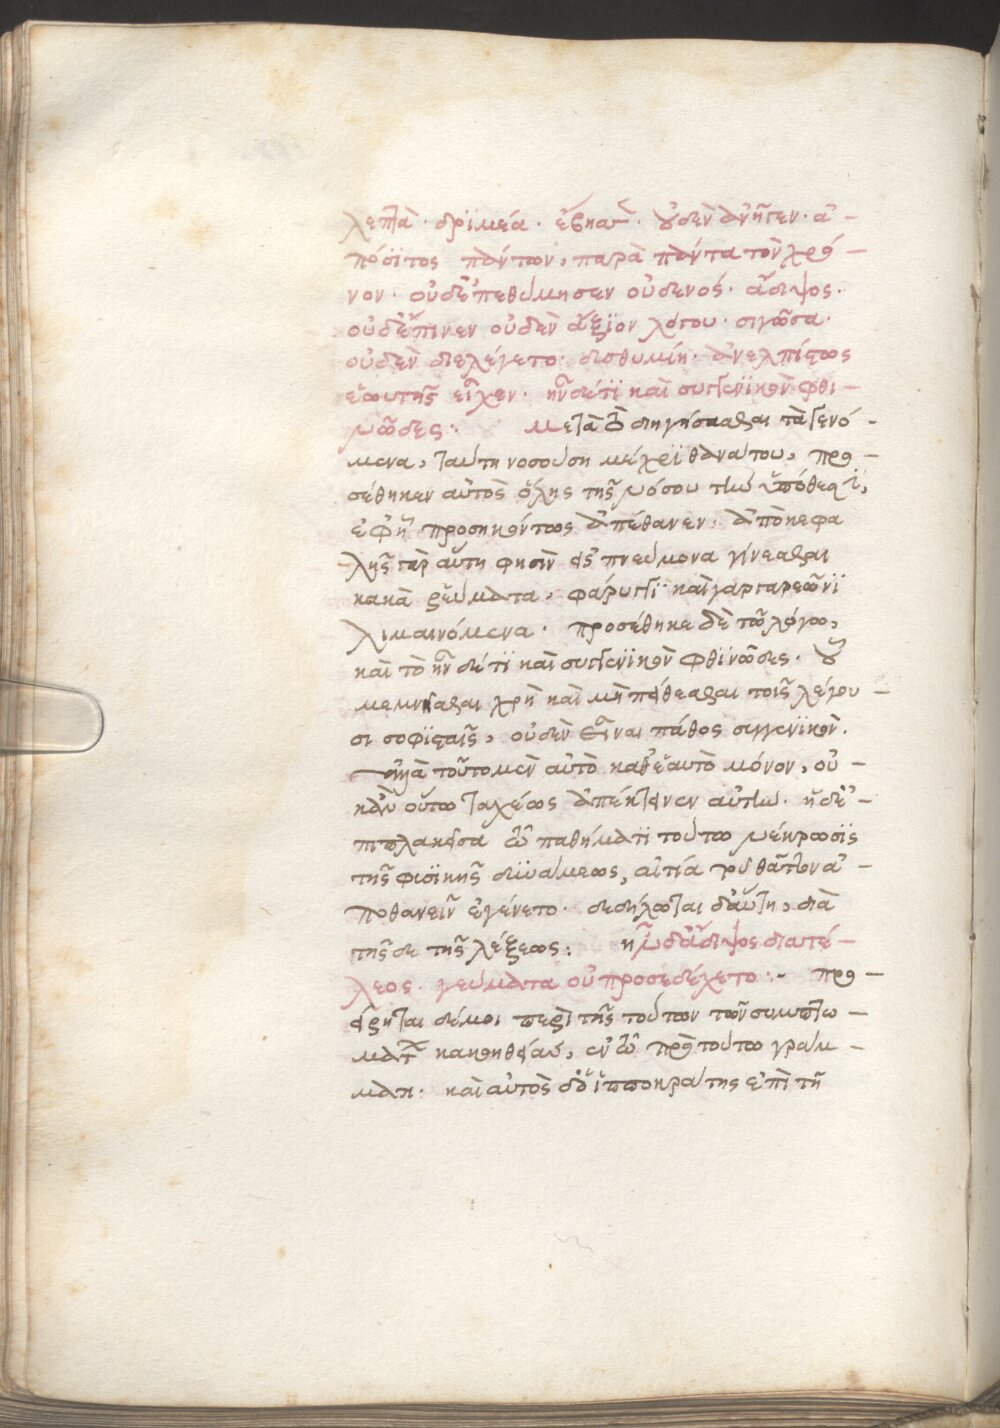 λεπτὰ· δριμέα· ἔβησσεν· οὐδὲν ἀνῆγεν· ἀ-
πόσιτος πάντων, παρὰ πάντα τὸν χρό-
νον· οὐδ' ἐπεθύμησεν οὐδενός· ἄδιψος·
οὐδ' ἔπινεν οὐδὲν ἄξιον λόγου· σιγῶσα·
οὐδὲν διελέγετο· δυσθυμίη· ἀνελπίστως
ἑωυτῆς εἶχεν· ἦν δέ τι καὶ συγγενικὸν φθι-
νῶδες:· μετὰ τὸ διηγήσασθαι τὰ γενό-
μενα, ταύτη νοσούση μέχρι θανάτου, προ-
σέθηκεν αὐτὸς ὅλης τῆς νόσου τὴν ὑπόθεσιν,
ἐφ' ἧ προσηκόντως ἀπέθανεν· ἀπὸ κεφα
λῆς γὰρ αὕτη φησὶν εἰς πνεύμονα γίνεσθαι
κακὰ ῥεύματα, φάρυγγι καὶ γαργαρεῶνι
λυμαινόμενα· προσέθηκε δὲ τῶ λόγω,
καὶ τὸ ἦν δέ τι καὶ συγγενικὸν φθινῶδες· οὗ
μεμνῆσθαι χρὴ καὶ μὴ πείθεσθαι τοῖς λέγου-
σι σοφισταῖς, οὐδὲν εἶναι πάθος συγγενικόν.
ἀλλὰ τοῦτο μὲν αὐτὸ καθ' ἑαυτὸ μόνον, οὐ-
κ ἂν οὕτω ταχέως ἀπέκτεινεν αὐτήν· ἡ δ' ἐ-
πιπλακεῖσα τῶ παθήματι τούτω νέκρωσις
τῆς φυσικῆς δυνάμεως, αἰτία τοῦ θᾶττον ἀ-
ποθανεῖν ἐγένετο· δεδήλωται δ' αὕτη, διὰ
τῆσδε τῆς λέξεως: ἦν δ' ἄδιψος διατέ-
λεος· γεύματα οὐ προσεδέχετο:- προ-
είρηται δέ μοι περὶ τῆς τούτων τῶν συμπτω-
μάτων κακοηθείας, ἐν τῶ πρὸ τούτω γράμ-
ματι· καὶ αὐτὸς ὁ ἱπποκράτης ἐπὶ τῆ